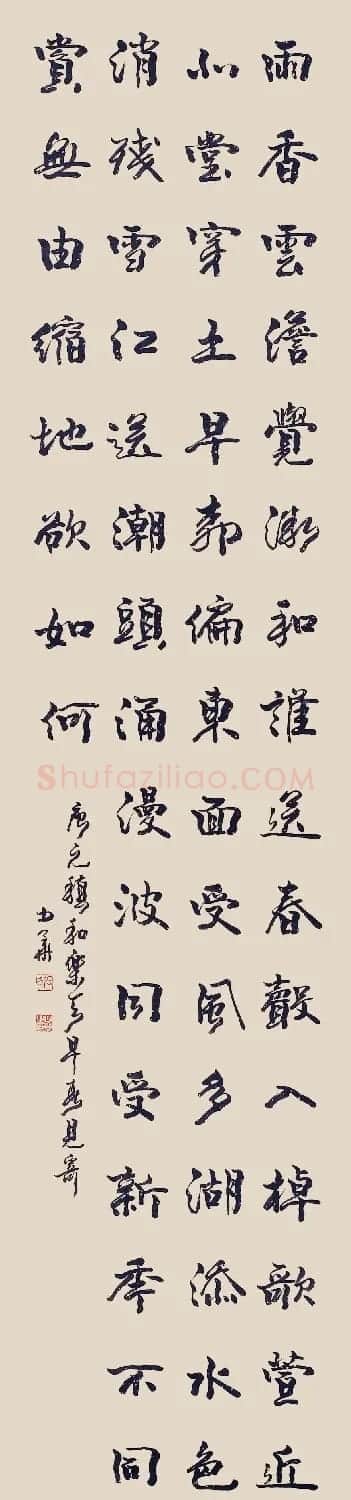 雨香雲澹覺微和誰送春聲入棹歌萱近
北堂穿土早柳偏東面受風多湖添水色
消残雪江送潮頭涌漫波同受新年不同
賞無由縮地欲如何
唐元稹和樂天早春見寄
Shufaziliao.COM